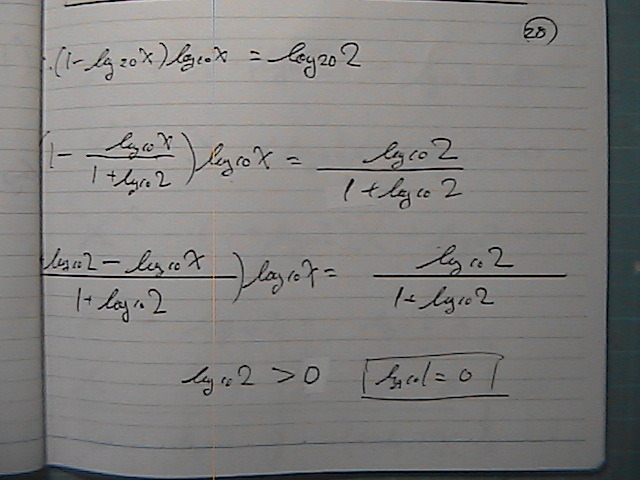 28
(1 - log₂₀x) log₁₀x = log₂₀2
(1 - log₁₀x / (1 + log₁₀2)) log₁₀x = log₁₀2 / (1 + log₁₀2)
log₁₀2 - log₁₀x / (1 + log₁₀2)) log₁₀x = log₁₀2 / (1 + log₁₀2)
log₁₀2 > 0 log₁₀1 = 0